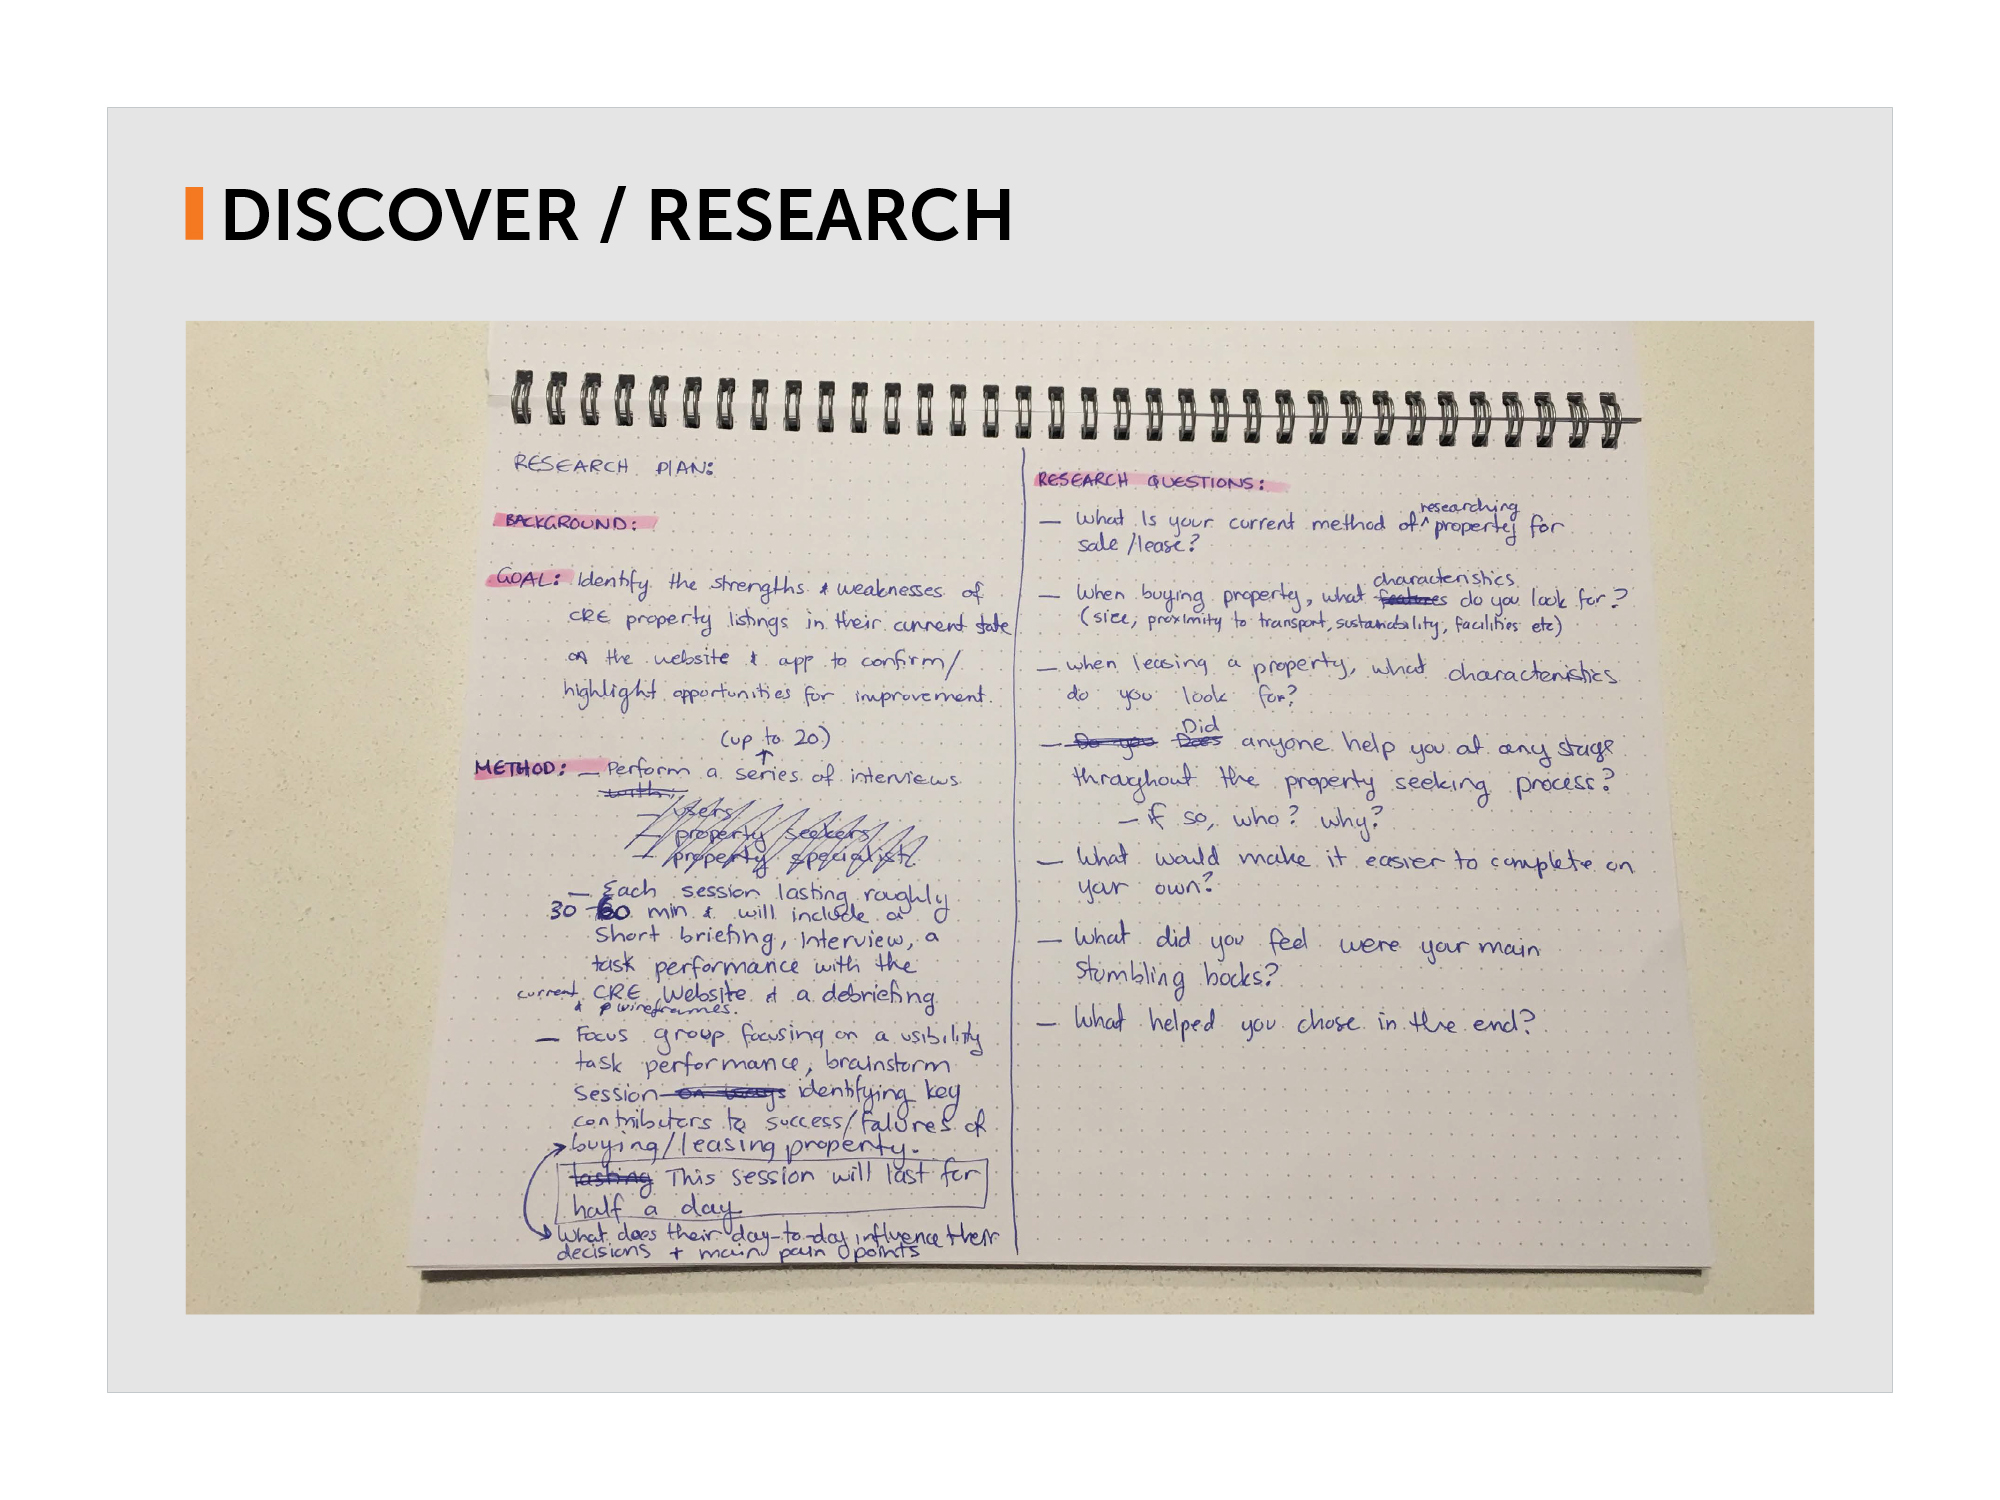 DISCOVER / RESEARCH
RESEARCH PLAN:
BACKGROUND:
GOAL: Identify the strengths & weaknesses of
CRE property listings in their current state
on the website & app to confirm/
highlight opportunities for improvement.
(up to 20)
METHOD: — Perform a series of interviews
with:
— users
— property seekers
— property specialist
— Each session lasting roughly
30 - 60 min & will include a
short briefing, interview, a
task performance with the
current CRE website & a debriefing
& wireframes.
— Focus group focusing on a usibility
task performance, brainstorm
session on ways identifying key
contributers to success/falures of
buying/leasing property.
lasting This session will last for
half a day
What does their day-to-day influence their
decisions + main pain points
RESEARCH QUESTIONS:
researching
— What is your current method of ^ property for
sale/lease?
characteristics
— When buying property, what features do you look for?
(size, proximity to transport, sustainability, facilities etc)
— when leasing a property, what characteristics
do you look for?
Did
— Do you Does anyone help you at any stage
throughout the property seeking process?
— if so, who? why?
— What would make it easier to complete on
your own?
— What did you feel were your main
stumbling bocks?
— What helped you chose in the end?